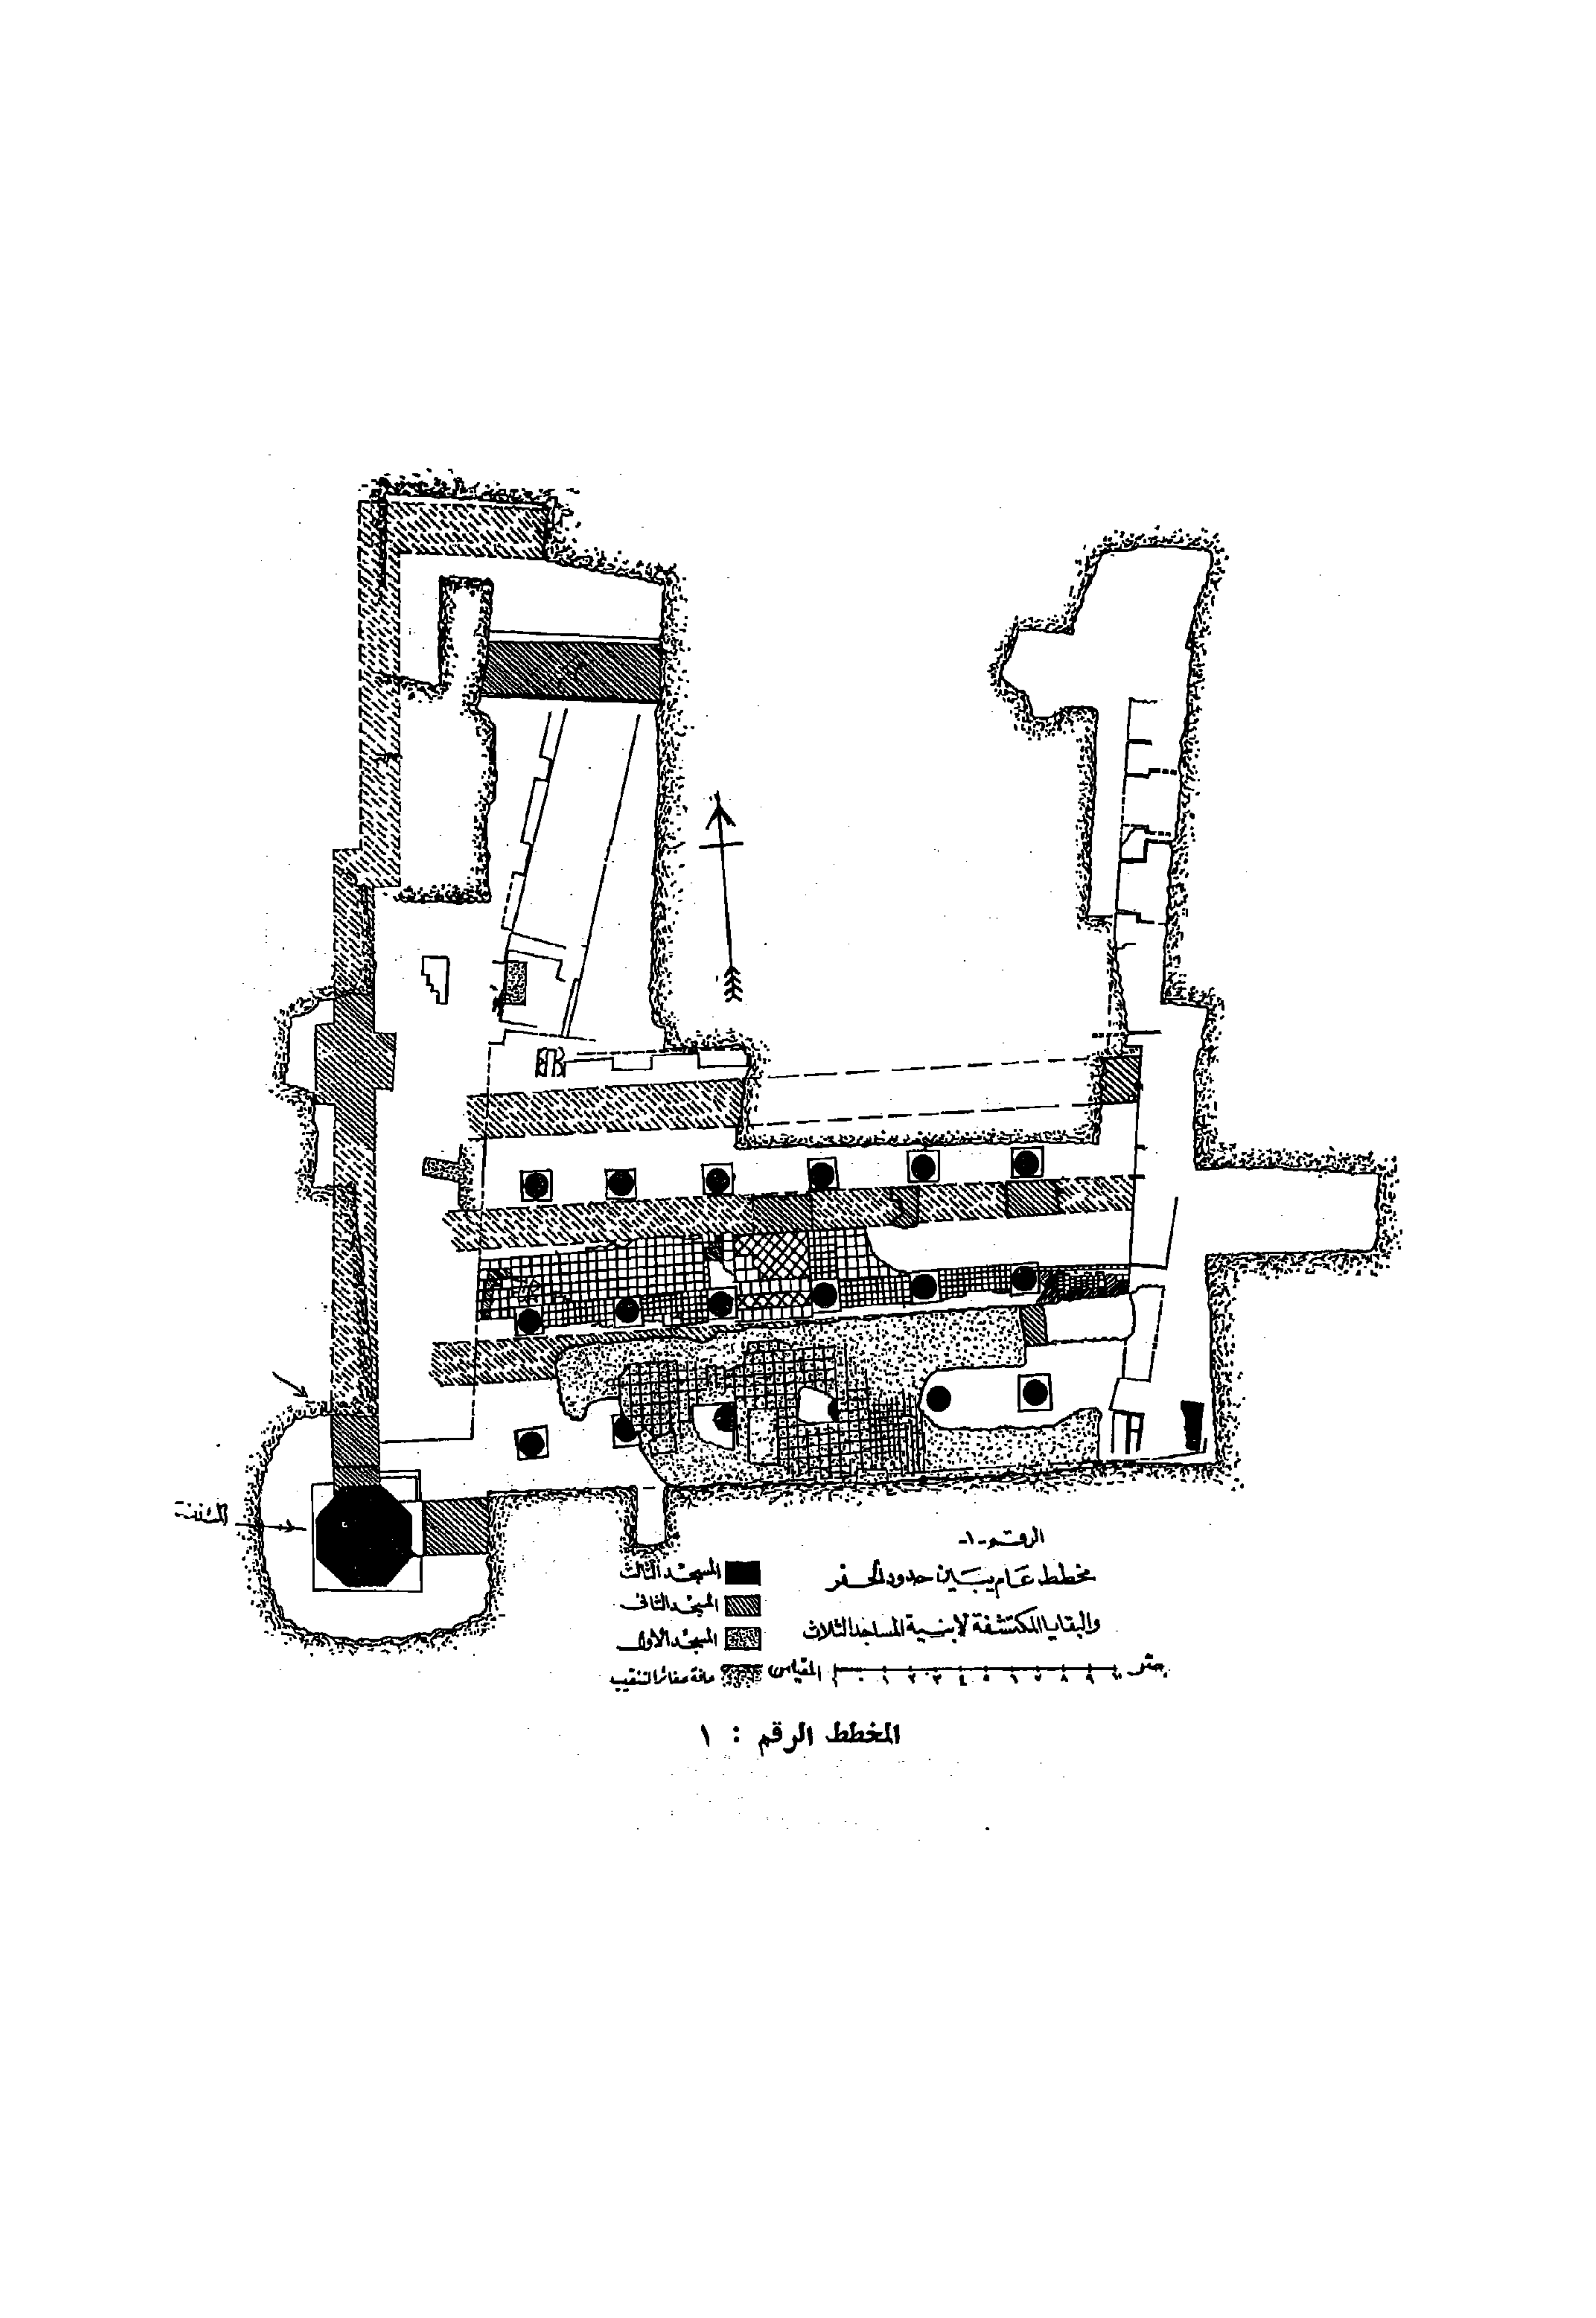 المئذنة
الرقم -١-
مخطط عام يبين حدود الحفر
والبقايا المكتشفة لابنية المساجد الثلاث
المسجد الثالث
المسجد الثاني
المسجد الاول
حافة حفائر التنقيب
المقياس ١ ٠ ١ ٢ ٣ ٤ ٥ ٦ ٧ ٨ ٩ ١٠ متر
المخطط الرقم : ١